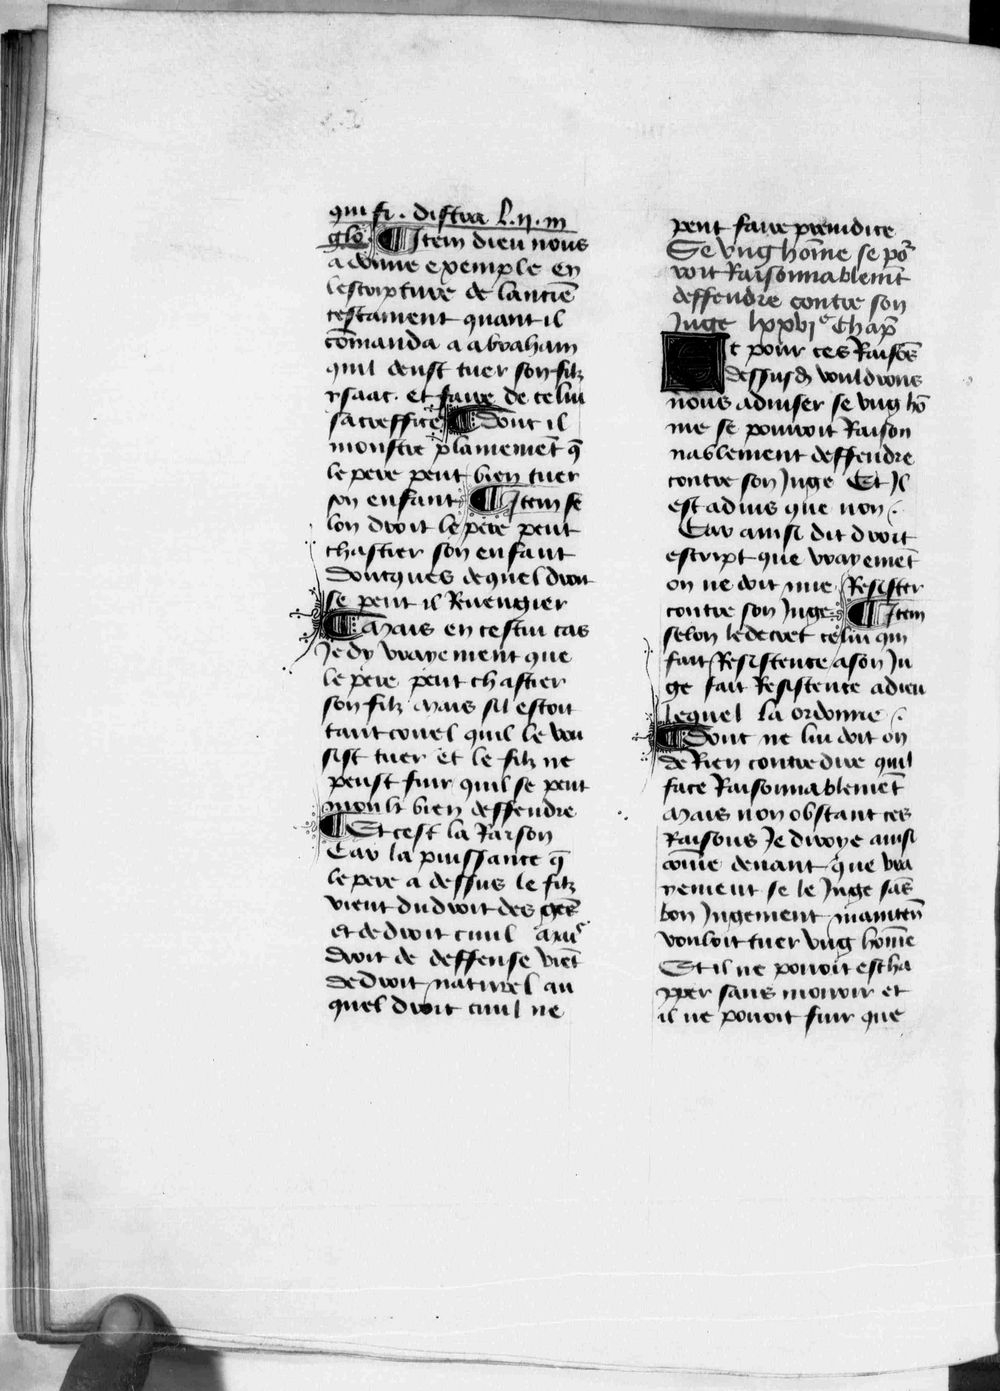 qui fi. distra l. ii. in
glo. ¶ Item dieu nous
a donne exemple en
lescripture de lancie͞
testament quant il
co͞manda a abraham
quil deust tuer son filz
ysaac. et faire de celui
sacreffice ¶ Dont il
monstre plainemẽt q̃
le pere peut bien tuer
son enfant ¶ Item se
lon droit le pere peut
chastier son enfant
Doncques de quel droit
se peut il Revengier
¶ Mais en cestui cas
Je dy vrayement que
le pere peut chastier
son filz Mais sil estoit
tant cruel quil le vou
sist tuer et le filz ne
peust fuir quil se peut
moult bien deffendre
¶ Et cest la Raison
Car la puissance q̃
le pere a dessus le filz
vient du droit des ge͞s
et de droit ciuil
Droit de deffense vie͞t
de droit naturel au
quel droit ciuil ne
peut faire preiudice
Se vng ho͞me se po͞
roit Raisonnablem͞t
deffendre contre son
Juge lxxviᵉ Chap͞
Et pour ces Raiso͞s
dessusd͞ vouldrons
nous aduiser se vng ho͞
me se pourroit Raison
nablement deffendre
contre son Juge Et Il
est aduis que non
Car ainsi dit droit
escript que vrayeme͞t
on ne doit mie Resister
contre son Juge ¶ Item
selon le decret celui qui
fait Resistence a son Ju
ge fait Resistence a dieu
lequel la ordonne
¶ Dont ne lui doit on
de Rien contredire quil
face Raisonnableme͞t
Mais non obstant ces
Raisons Je diroye ainsi
co͞me deuant que vra
yement se le Juge sa͞s
bon Jugement mainten͞
vouloit tuer vng ho͞me
Et il ne pouoit escha
pper sans mourir et
il ne pouoit fuir que